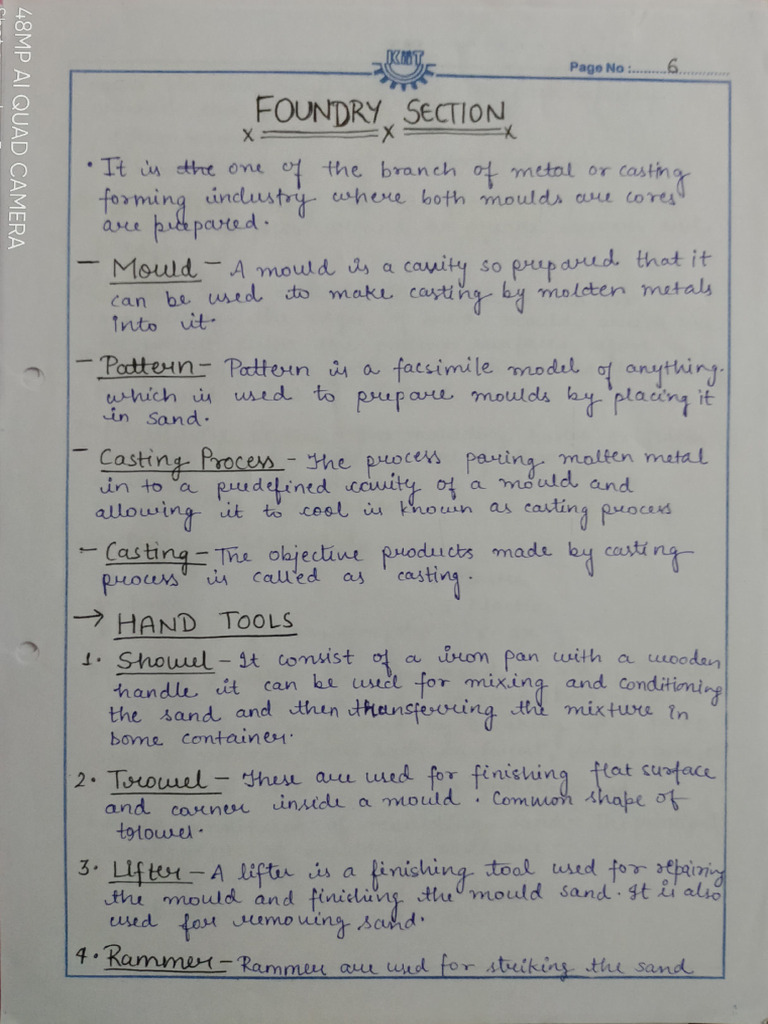 48MP AI QUAD CAMERA
KMT
Page No :.........6...............
FOUNDRY SECTION
x x x
• It is the one of the branch of metal or casting
forming industry where both moulds are cores
are prepared.
- Mould - A mould is a cavity so prepared that it
can be used to make casting by molden metals
into it.
- Pattern - Pattern is a facsimile model of anything.
which is used to prepare moulds by placing it
in sand.
- Casting Process - The process poring molten metal
in to a predefined cavity of a mould and
allowing it to cool is known as casting process
- Casting - The objective products made by casting
process is called as casting.
→ HAND TOOLS
1. Showel - It consist of a iron pan with a wooden
handle it can be used for mixing and conditioning
the sand and then transferring the mixture in
some container.
2. Trowel - These are used for finishing flat surface
and corner inside a mould. Common shape of
trowel.
3. Lifter - A lifter is a finishing tool used for repairing
the mould and finishing the mould sand. It is also
used for removing sand.
4. Rammer - Rammer are used for striking the sand